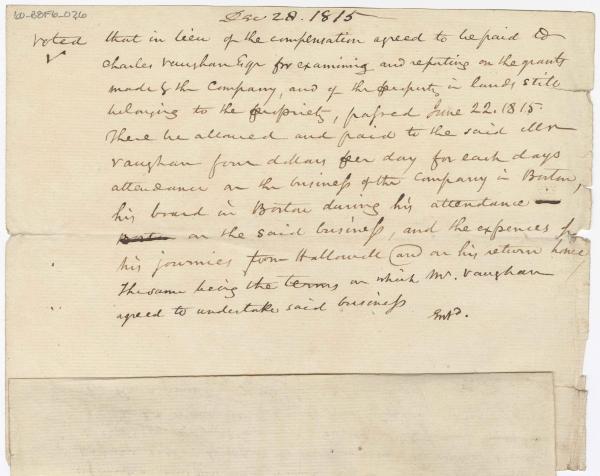 60-88F6-026
Dec 28. 1815
Voted that in lieu of the compensation agreed to be paid to
Charles Vaughan Esqr for examining and reporting on the grants
made by the Company, and of the property in lands still
belonging to the propriety, passed June 22. 1815.
There be allowed and paid to the said Mr
Vaughan four dollars per day for each days
attendance on the business of the Company in Boston,
his board in Boston during his attendance
Boston on the said business, and the expences of
his journies from Hallowell and on his return home,
The same being the terms on which Mr. Vaughan
agreed to undertake said business
Entd.